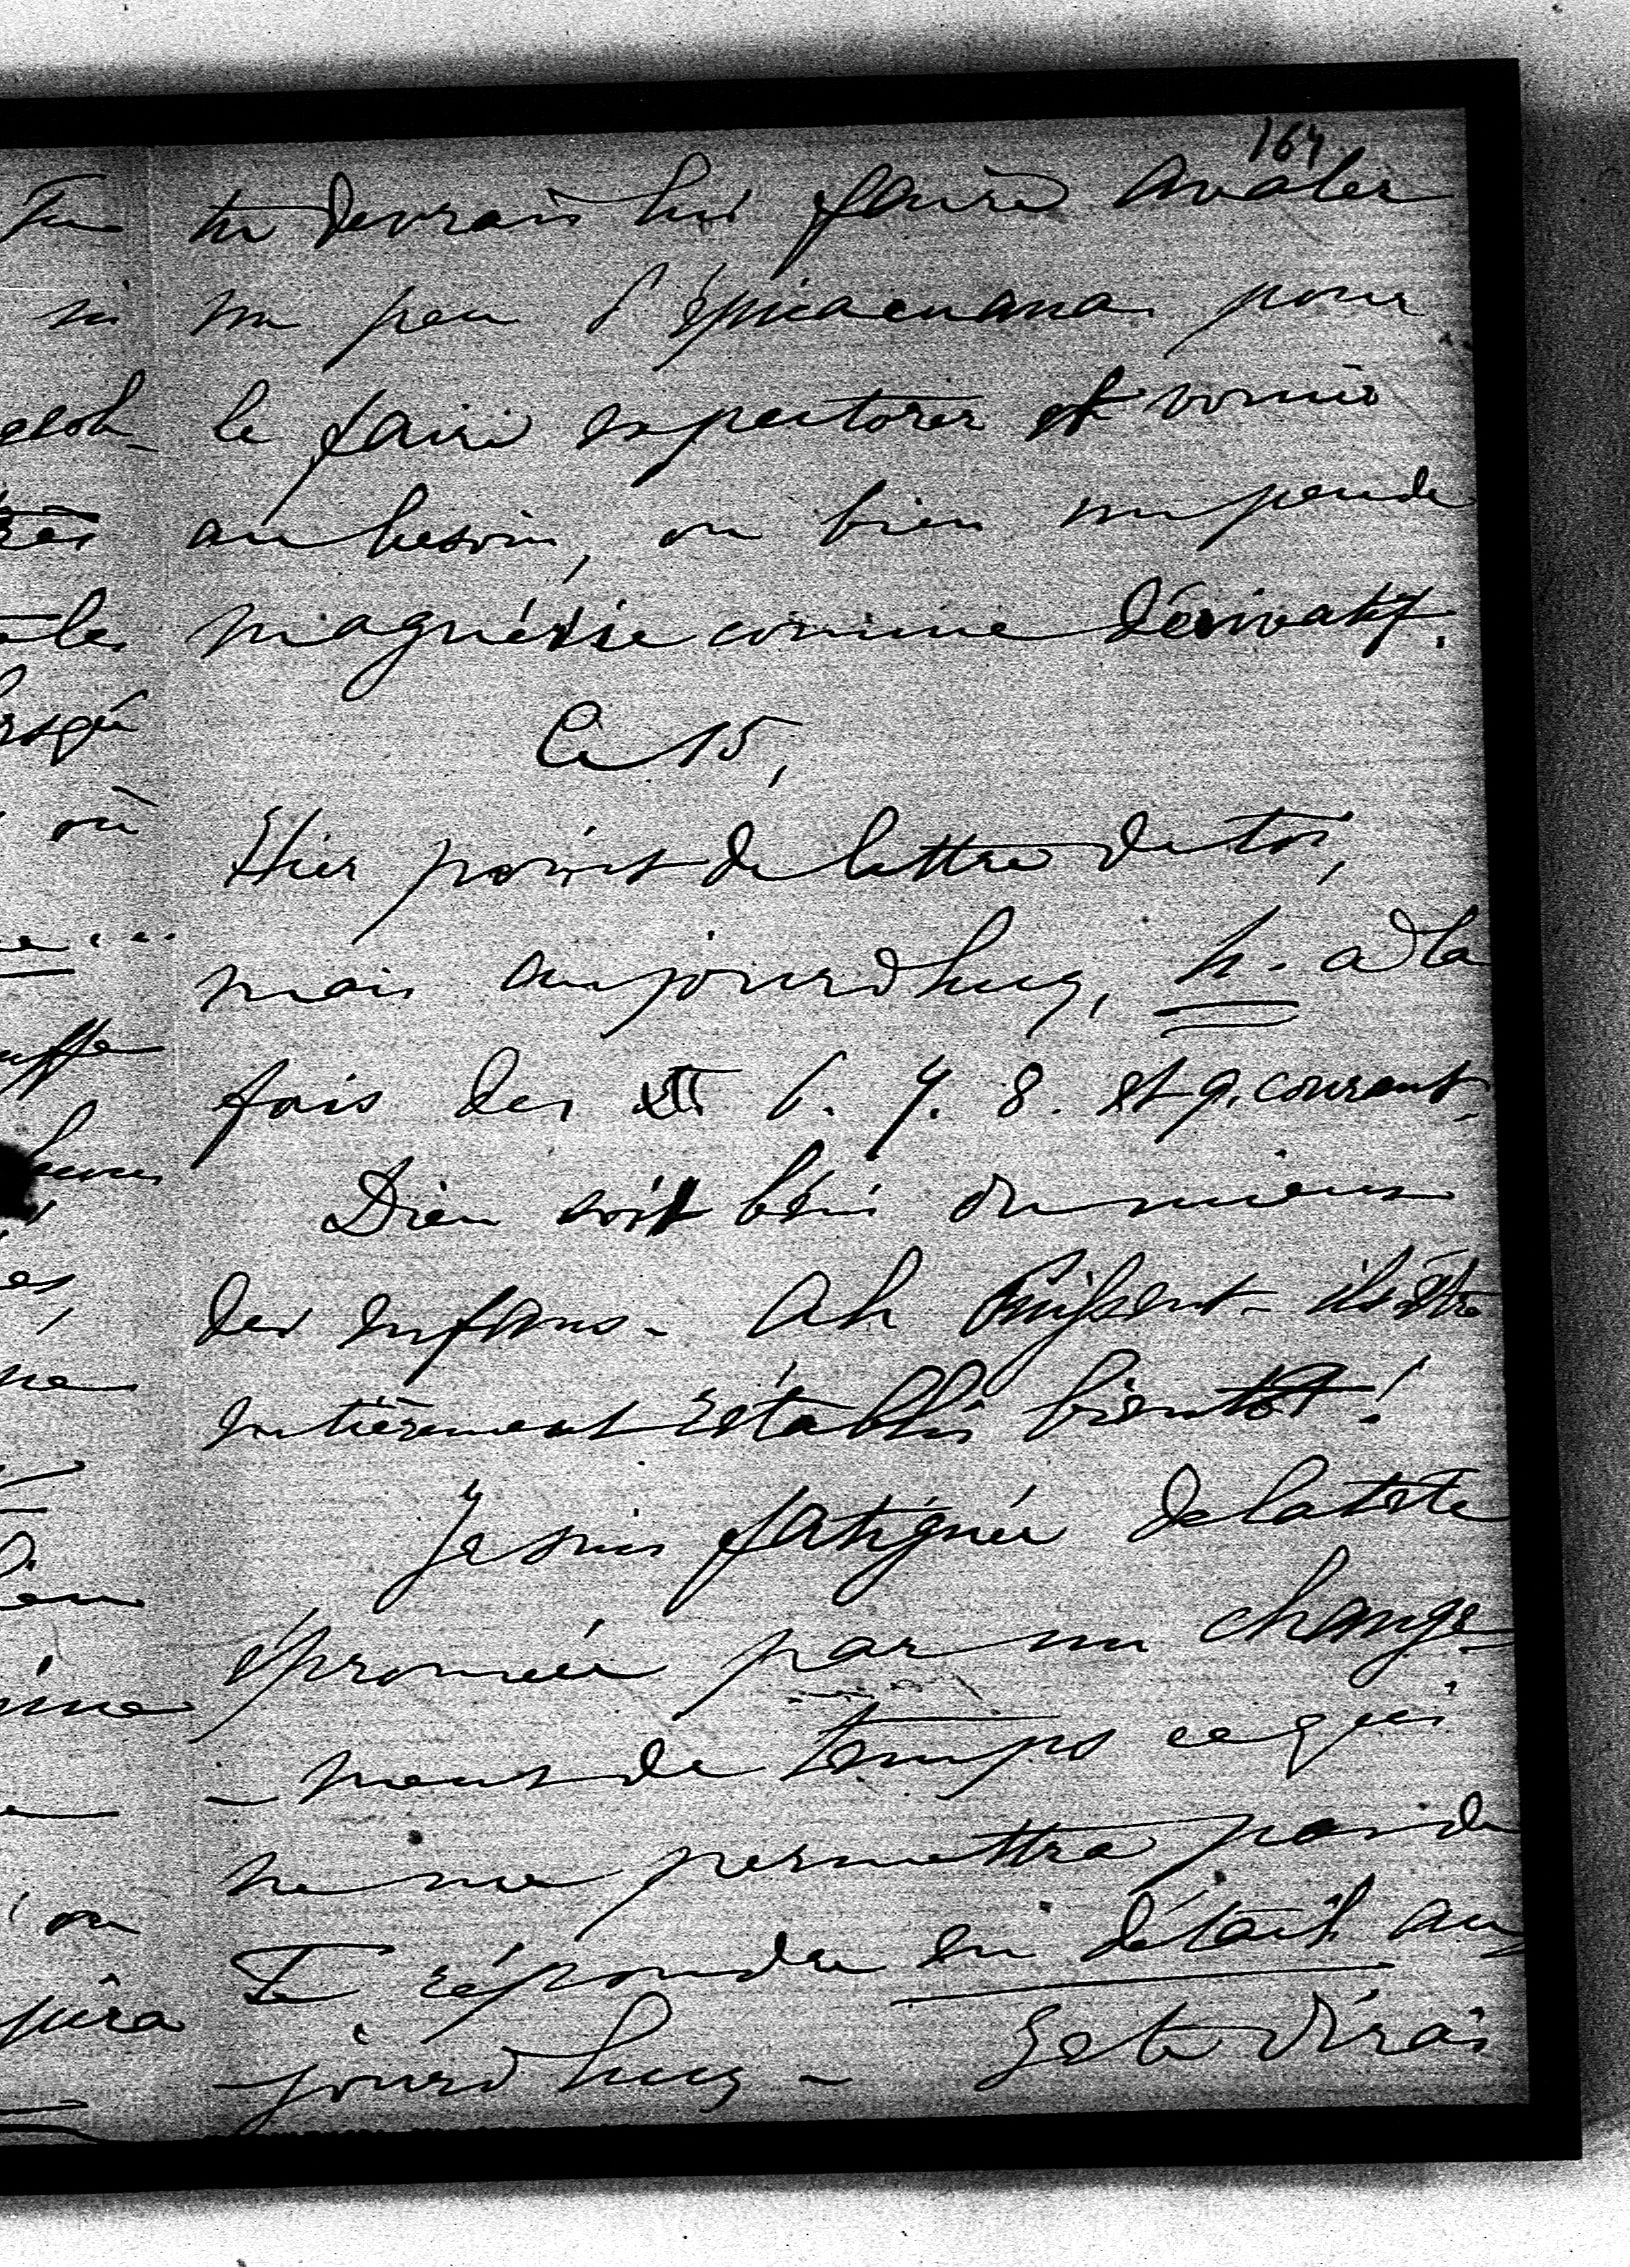 164
tu devrais lui faire avaler
un peu d'épicacuana pour
le faire expectorer et vomir
au besoin, ou bien un peu de
magnésie comme dérivatif.
Ce 15,
Hier point de lettre de toi,
mais aujourd'huy, 4. à la
fois des 6. 7. 8. et 9. courant.
Dieu soit béni du mieux
des enfans. Ah puissent-ils être
entièrement rétablis bientôt!
Je suis fatiguée de la tête
éprouvée par un change-
-ment de temps ce qui
ne me permettra pas de
Te répondre en détail au-
-jourd'huy - Je te dirai
Tu
si
où